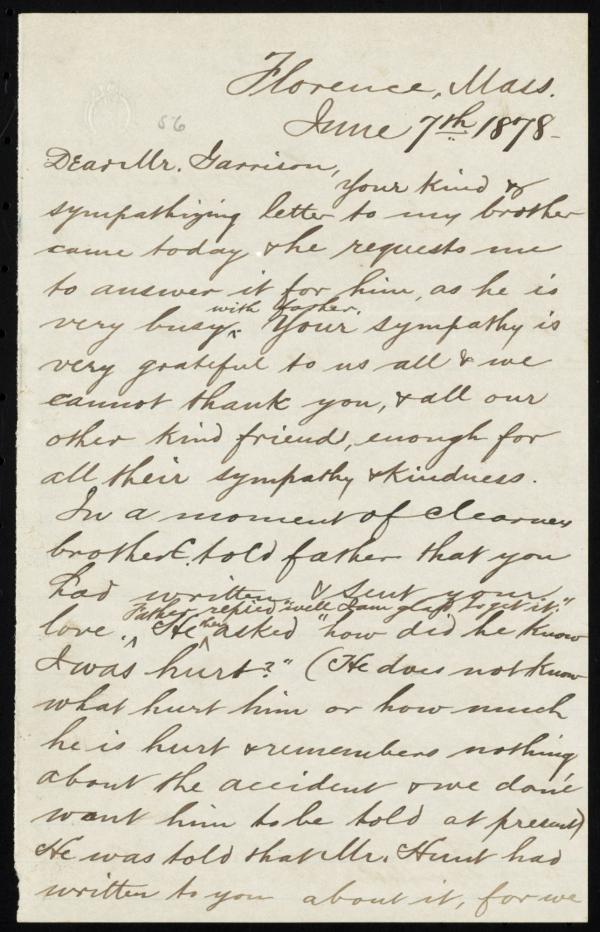 Florence, Mass.
June 7th 1878.
56
Dear Mr. Garrison,
Your kind &
sympathizing letter to my brother
came today & he requests me
to answer it for him, as he is
with father.
very busy ^. Your sympathy is
very grateful to us all & we
cannot thank you, & all our
other kind friends, enough for
all their sympathy & kindness.
In a moment of clearness
brother C. told father that you
had written & sent your
Father replied "well I am glad to get it."
love. ^ He ^ then asked "how did he know
I was hurt?" (He does not know
what hurt him or how much
he is hurt & remembers nothing
about the accident & we don't
want him to be told at present)
He was told that Mr. Hunt had
written to you about it, for we